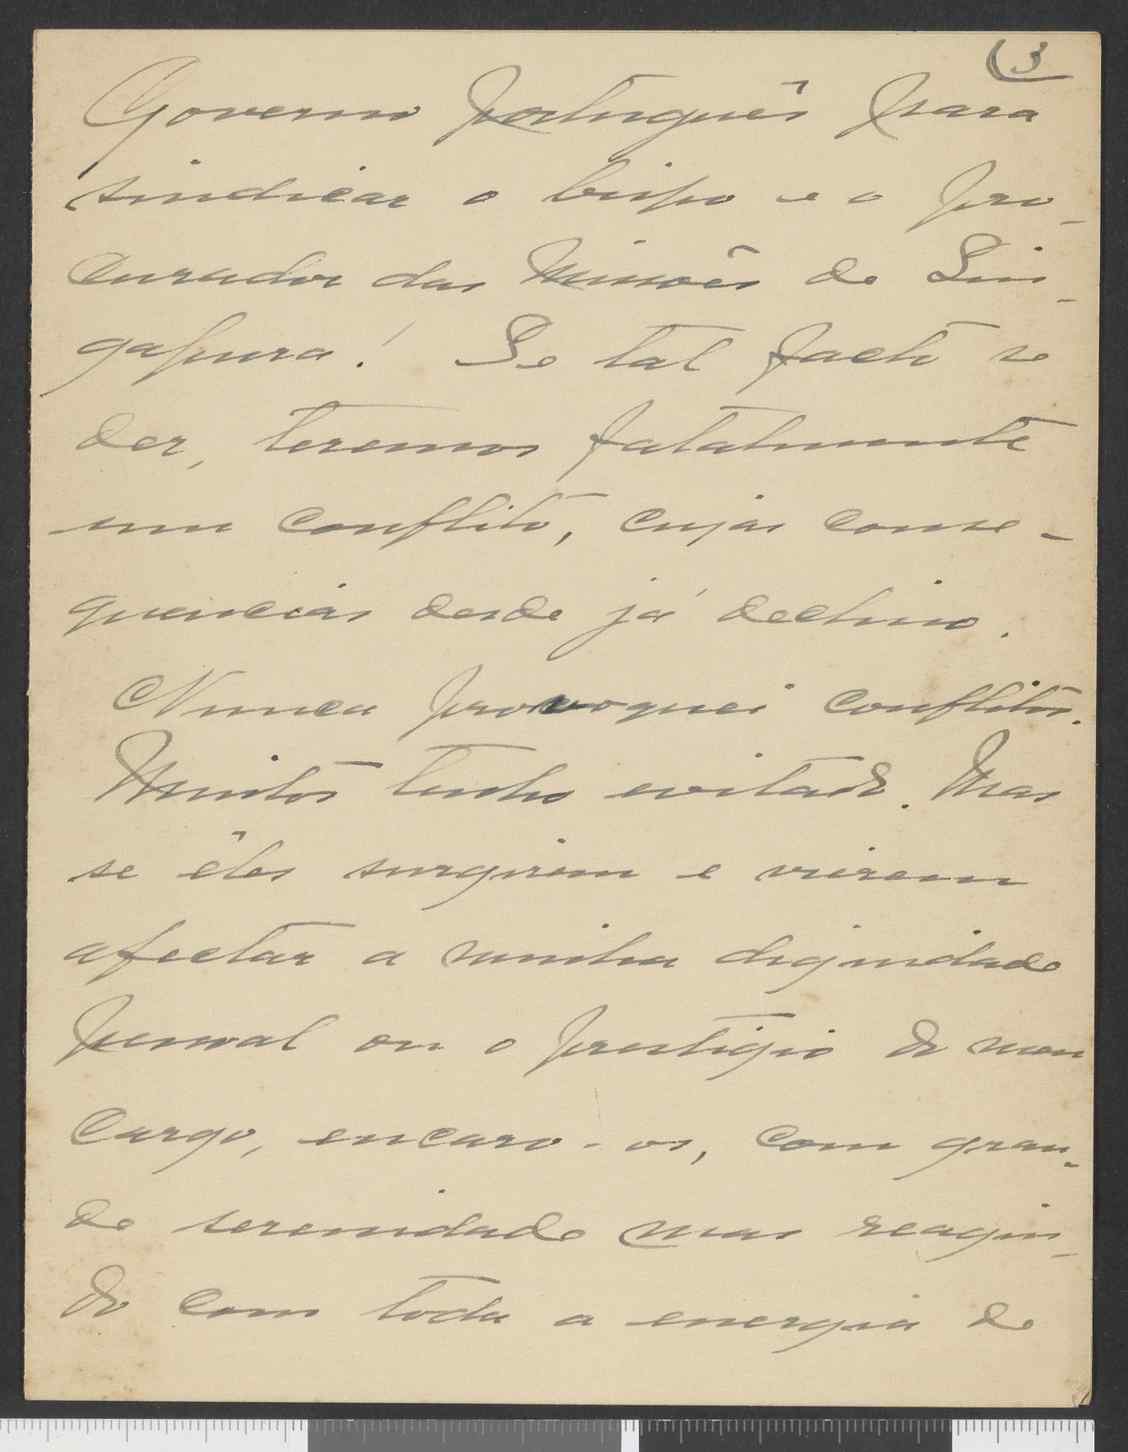 (3
Governo Português para
sindicar o bispo e o pro-
curador das Missões de Sin-
gapura! Se tal facto se
der, teremos fatalmente
um conflito, cujas conse-
quencias desde já declino.
Nunca provoquei conflitos.
Muitos tenho evitado. Mas
se êles surgirem e vierem
afectar a minha dignidade
pessoal ou o prestigio do meu
cargo, encaro-os, com gran-
de serenidade mas reagin-
do com toda a energia de